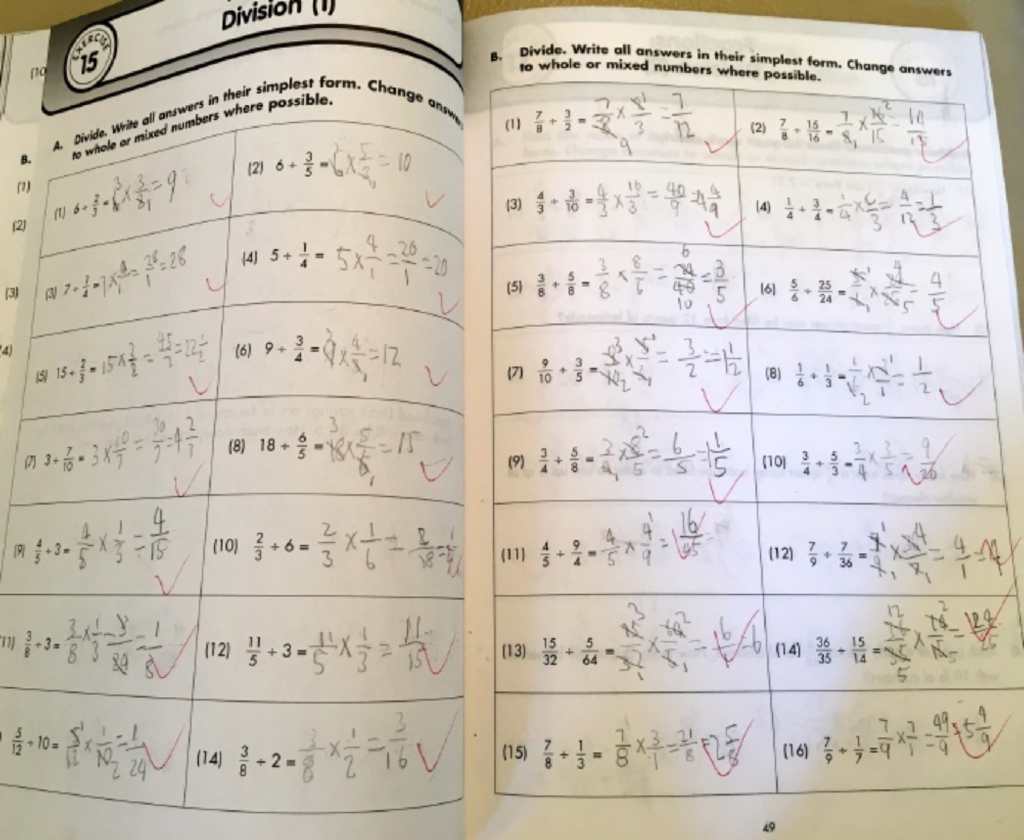 Division (1)
EXERCISE
15
A. Divide. Write all answers in their simplest form. Change answ
to whole or mixed numbers where possible.
(1) 6 ÷ 2/3 = 6 × 3/2 = 9
(2) 6 ÷ 3/5 = 6 × 5/3 = 10
(4) 5 ÷ 1/4 = 5 × 4/1 = 20/1 = 20
(5) 15 ÷ 2/3 = 15 × 3/2 = 45/2 = 22 1/2
(6) 9 ÷ 3/4 = 9 × 4/3 = 12
(7) 3 ÷ 7/10 = 3 × 10/7 = 30/7 = 4 2/7
(8) 18 ÷ 6/5 = 18 × 5/6 = 15
(9) 4/5 ÷ 3 = 4/5 × 1/3 = 4/15
(10) 2/3 ÷ 6 = 2/3 × 1/6 =
11) 3/8 ÷ 3 = 3/8 × 1/3 = 3/24 = 1/8
(12) 11/5 ÷ 3 = 11/5 × 1/3 = 11/15
5/12 ÷ 10 = 5/12 × 1/10 = 1/24
(14) 3/8 ÷ 2 = 3/8 × 1/2 = 3/16
B.
(1)
(2)
(3)
4)
B. Divide. Write all answers in their simplest form. Change answers
to whole or mixed numbers where possible.
(1) 7/8 ÷ 3/2 =
(2) 7/8 ÷ 15/16 = 7/8 × 16/15 = 14/15
(3) 4/3 ÷ 3/10 = 4/3 × 10/3 = 40/9 = 4 4/9
(4) 1/4 ÷ 3/4 = 1/4 × 4/3 = 4/12 = 1/3
(5) 3/8 ÷ 5/8 = 3/8 × 8/5 = 24/40 = 3/5
(6) 5/6 ÷ 25/24 = 5/6 × 24/25 = 4/5
(7) 9/10 ÷ 3/5 = 9/10 × 5/3 = 3/2 = 1 1/2
(8) 1/6 ÷ 1/3 = 1/6 × 3/1 = 1/2
(9) 3/4 ÷ 5/8 = 3/4 × 8/5 = 6/5 = 1 1/5
(10) 3/4 ÷ 5/3 = 3/4 × 3/5 = 9/20
(11) 4/5 ÷ 9/4 = 4/5 × 4/9 = 16/45
(12) 7/9 ÷ 7/36 = 7/9 × 36/7 = 4/1 = 4
(13) 15/32 ÷ 5/64 = 15/32 × 64/5 = 6/1 = 6
(14) 36/35 ÷ 15/14 = 36/35 × 14/15 = 24/25
(15) 7/8 ÷ 1/3 = 7/8 × 3/1 = 21/8 = 2 5/8
(16) 7/9 ÷ 1/7 = 7/9 × 7/1 = 49/9 = 5 4/9
49